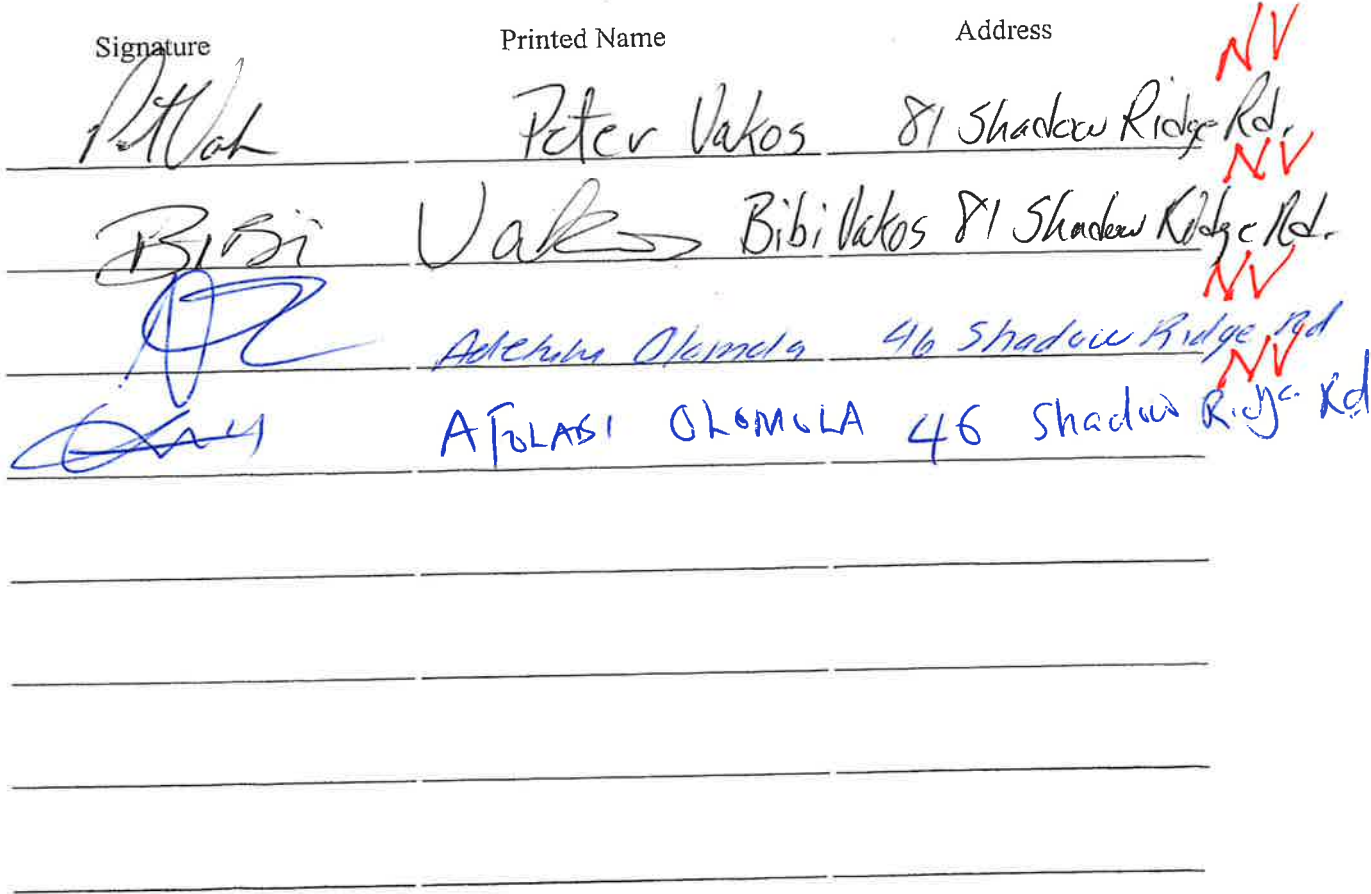 Signature Printed Name Address
NV
Peter Vakos 81 Shadow Ridge Rd.
NV
Bibi Vakos Bibi Vakos 81 Shadow Ridge Rd.
NV
Olomola 46 Shadow Ridge Rd
NV
AFOLABI OLOMOLA 46 Shadow Ridge Rd